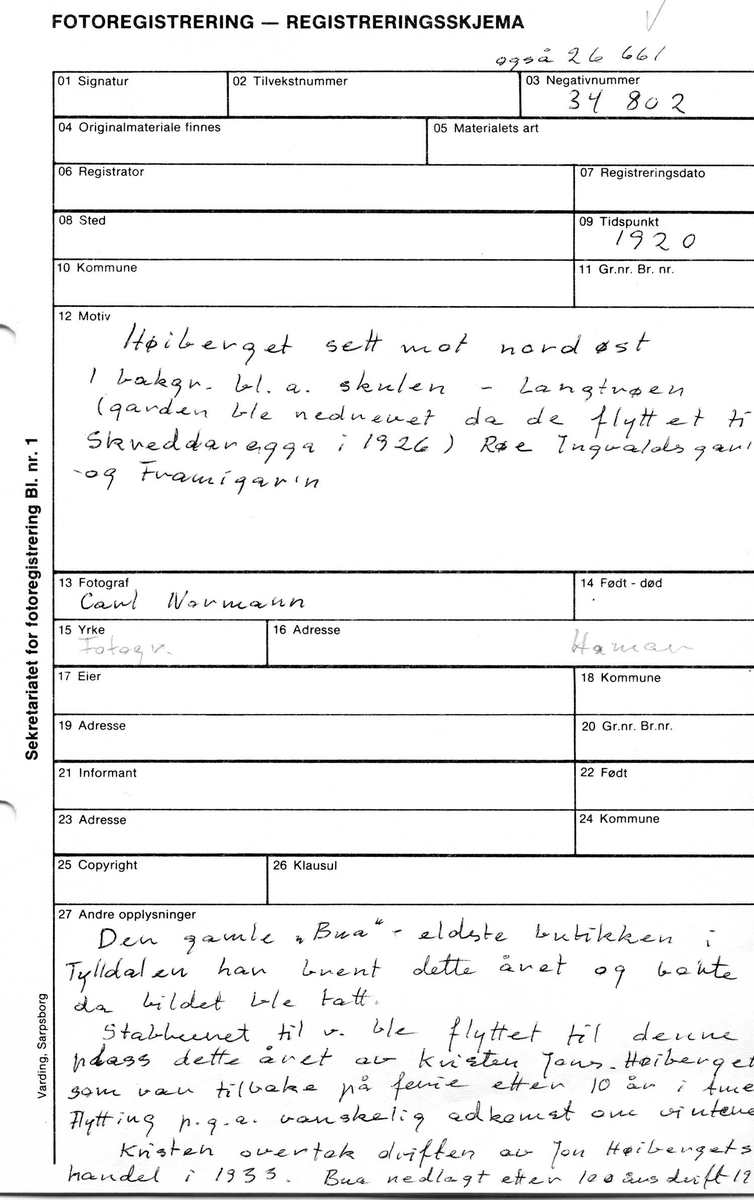 FOTOREGISTRERING — REGISTRERINGSSKJEMA
også 26 661
01 Signatur
02 Tilvekstnummer
03 Negativnummer
34 802
04 Originalmateriale finnes
05 Materialets art
06 Registrator
07 Registreringsdato
08 Sted
09 Tidspunkt
1920
10 Kommune
11 Gr.nr. Br. nr.
12 Motiv
Høiberget sett mot nord øst
I bakgr. bl. a. skulen - Langtrøen
(garden ble nedrevet da de flyttet ti
Skreddaregga i 1926) Røe Ingvaldsgar
og Framigar'n
13 Fotograf
Carl Normann
14 Født - død
15 Yrke
Fotogr.
16 Adresse
Hamar
17 Eier
18 Kommune
19 Adresse
20 Gr.nr. Br.nr.
21 Informant
22 Født
23 Adresse
24 Kommune
25 Copyright
26 Klausul
27 Andre opplysninger
Den gamle „Bua" - eldste butikken i
Tylldalen har brent dette året og
da bildet ble tatt.
Stabburet til v. ble flyttet til denne
plass dette året av Kristen Jons. Høiberget
som var tilbake på ferie etter 10 år i Ame
Flytting p.g.a. vanskelig adkomst om vintere
Kristen overtok driften av Jon Høibergets
handel i 1933. Bua nedlagt etter 100 års drift 19
Sekretariatet for fotoregistrering Bl. nr. 1
Varding, Sarpsborg